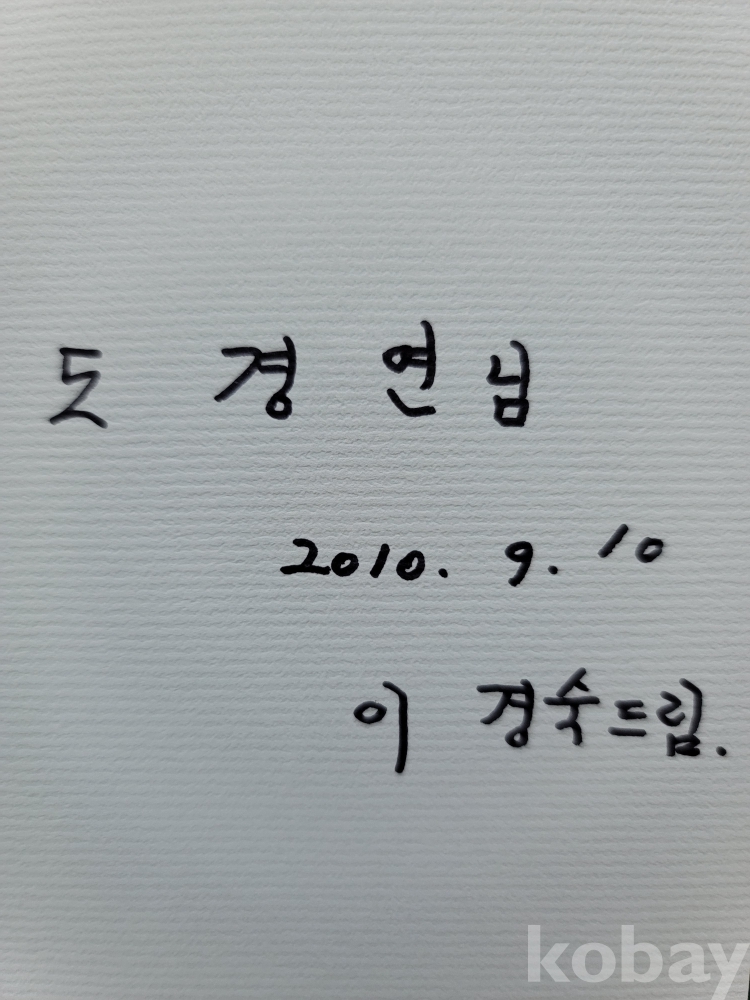 도 경 연님
2010. 9. 10
이 경숙드림.
kobay